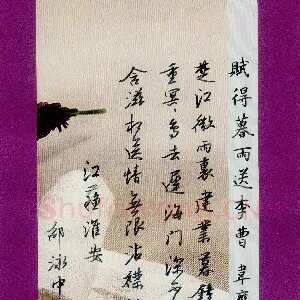 賦得暮雨送李曹 韋應
楚江微雨裏建業暮鐘
重冥々鳥去遲海門深
含滋相送情無限沾襟
江蘇淮安